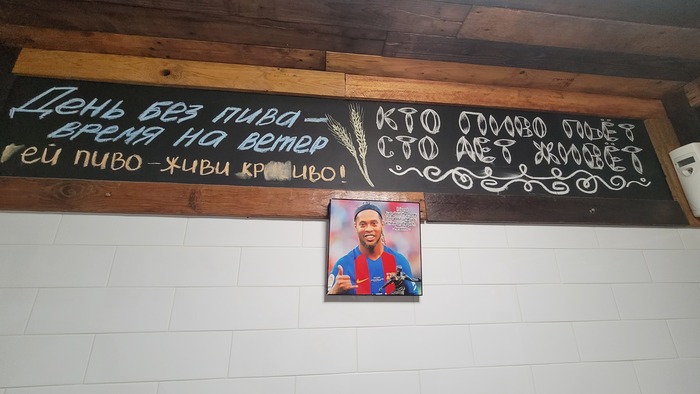 День без пива –
время на ветер
пей пиво – живи красиво!
КТО ПИВО ПЬЁТ
СТО ЛЕТ ЖИВЁТ